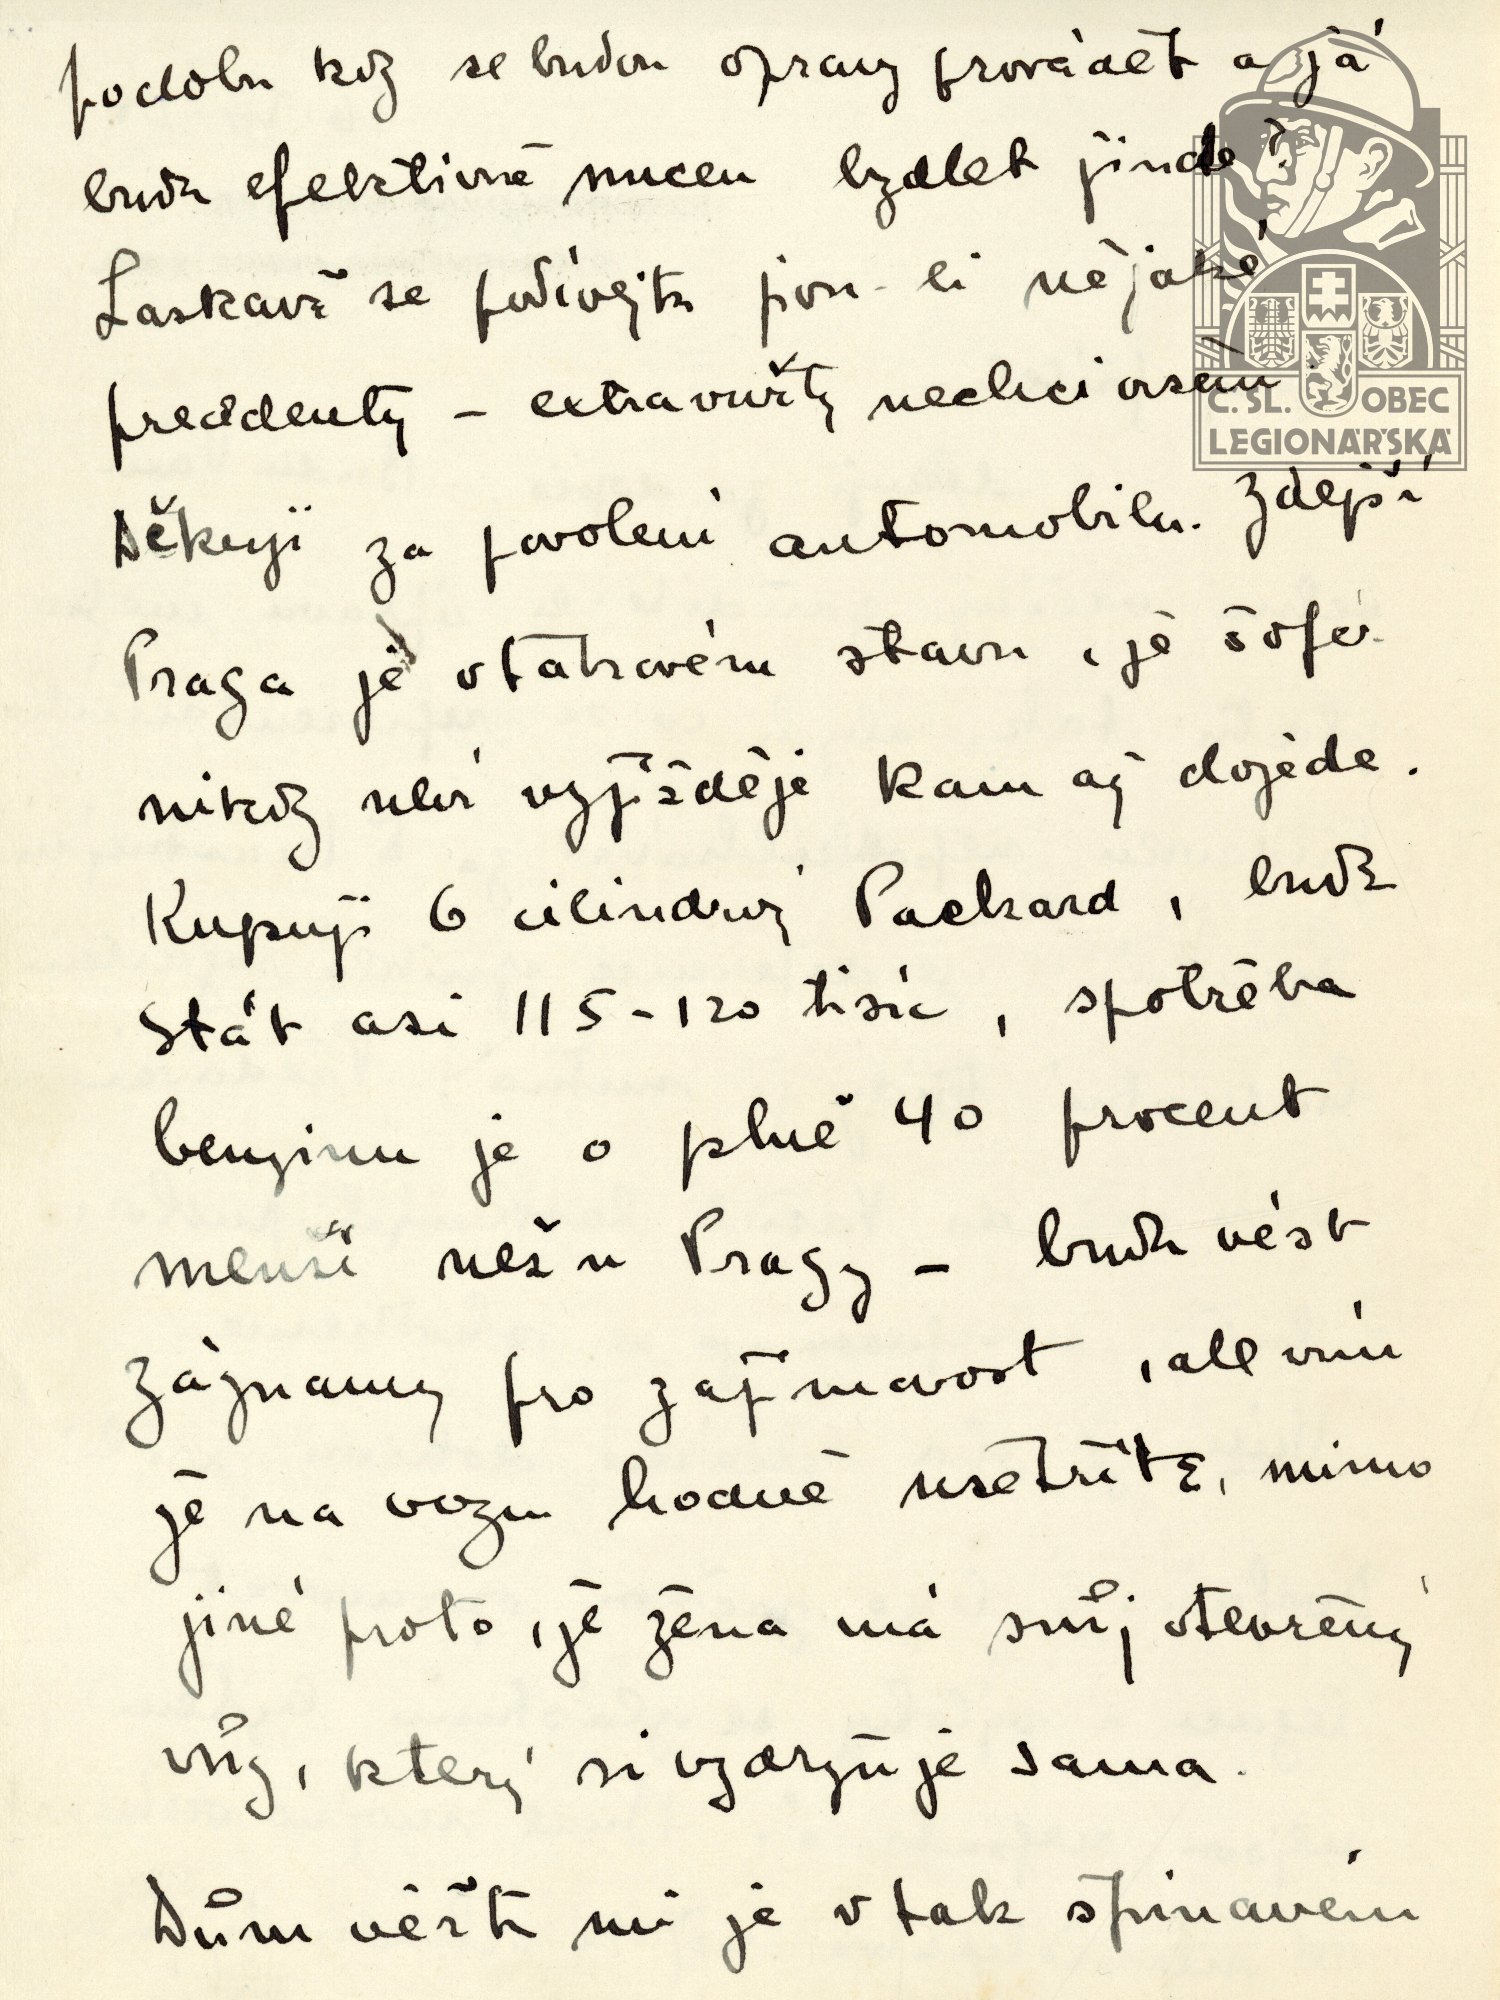 podobu kdy se budou opravy provádět a já
budu efektivně nucen bydlet jinde?
Laskavě se podívejte jsou-li nějaké
precedenty – extravuršty nechci ovšem
Děkuji za povolení automobilu. Zdejší
Praga je v takovém stavu, že šofér
nikdy neví vyjížděje kam až dojede.
Kupuji 6 cilindrový Packard, bude
stát asi 115-120 tisíc, spotřeba
benzinu je o plně 40 procent
menší než u Pragy – budu vést
záznamy pro zajímavost, ale vím
že na vozu hodně ušetříte, mimo
jiné proto, že žena má svůj otevřený
vůz, který si vydržuje sama.
Dům věřte mi je v tak špinavém
C. SL. OBEC
LEGIONÁŘSKÁ